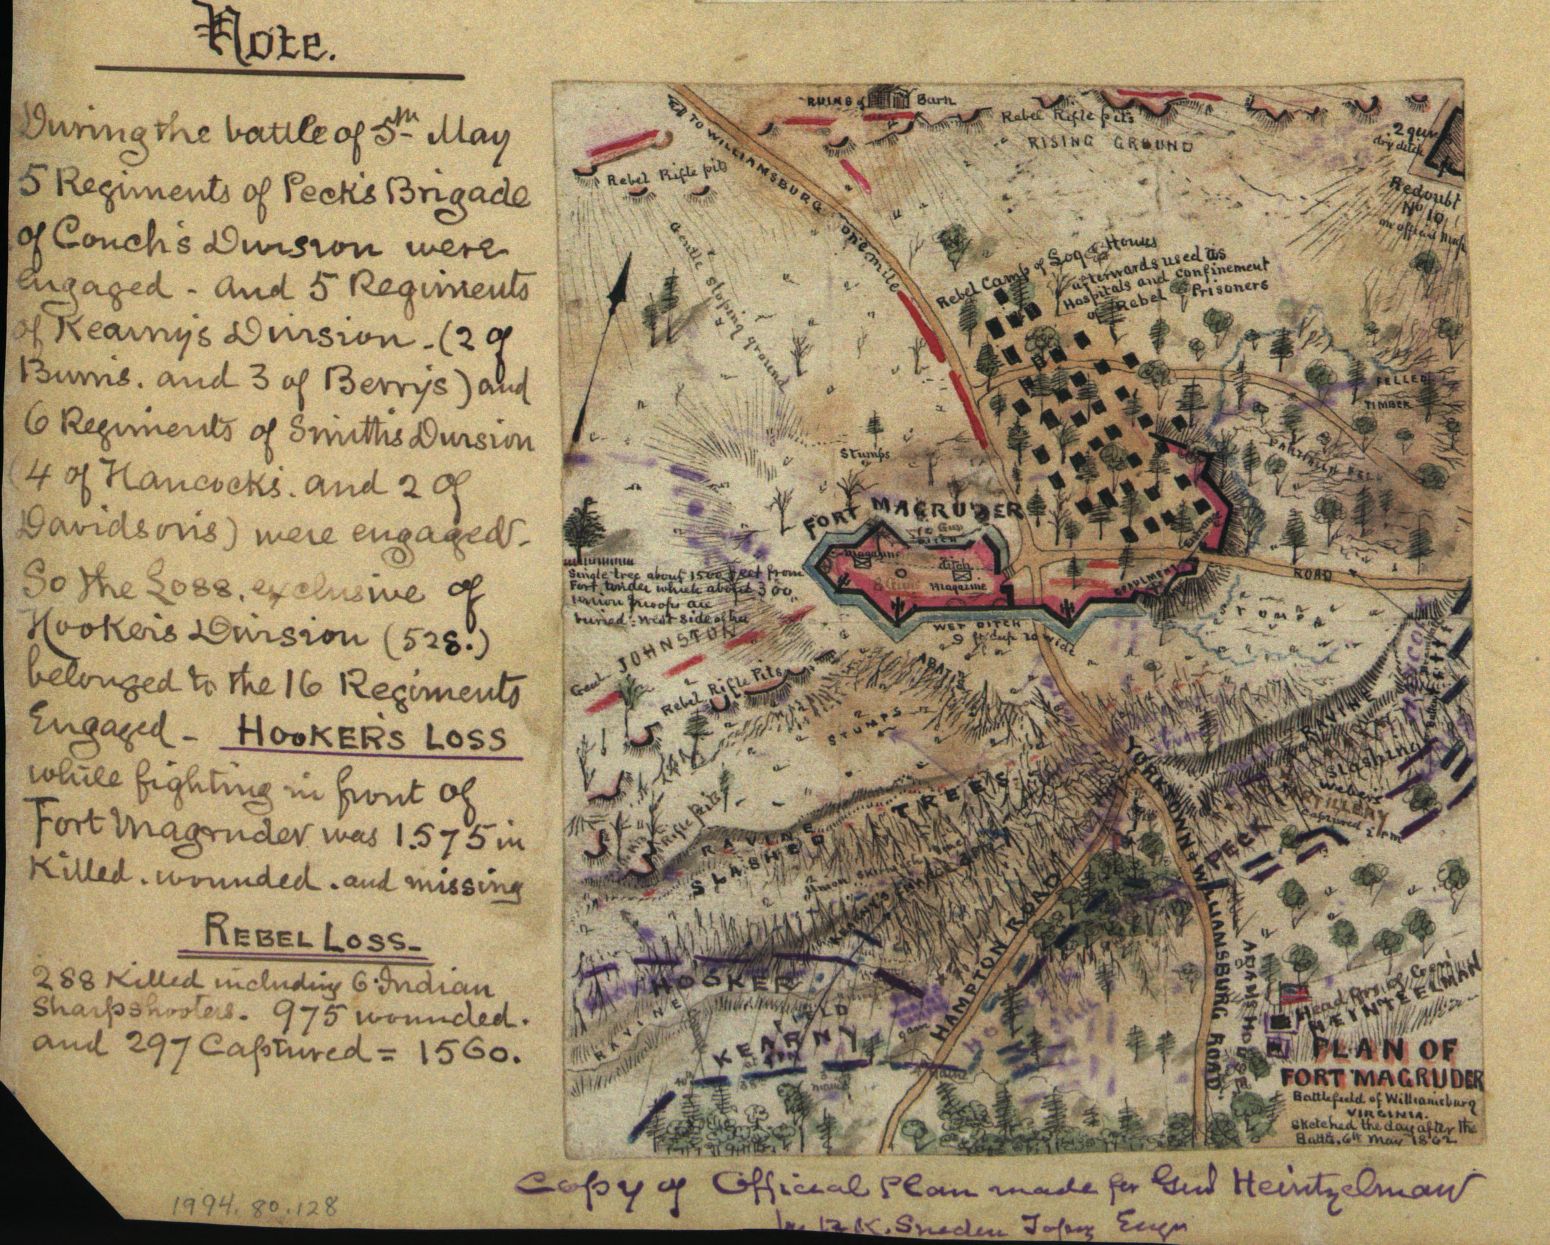 Note.
During the battle of 5th May
5 Regiments of Peck's Brigade
of Couch's Division were
engaged - and 5 Regiments
of Kearny's Division - (2 of
Birnis. and 3 of Berry's) and
6 Regiments of Smith's Division
(4 of Hancock's. and 2 of
Davidson's) were engaged -
So the Loss, exclusive of
Hooker's Division (528.)
belonged to the 16 Regiments
Engaged - HOOKER'S LOSS
while fighting in front of
Fort Magruder was 1.575 in
Killed. wounded. and missing
REBEL LOSS-
288 Killed including 6 Indian
Sharpshooters. 975 wounded.
and 297 Captured = 1560.
1994.80.128
RUINS of Barn
TO WILLIAMSBURG one mile
Rebel Rifle pits
RISING GROUND
2 gun
dry ditch
Redoubt
No 10
on official map
Rebel Rifle pits
Gentle sloping ground
Rebel Camp of Log Houses
afterwards used as
Hospitals and confinement
of Rebel Prisoners
FELLED
TIMBER
Stumps
FORT MAGRUDER
DITCH
Magazine
Ditch
Magazine
Single tree about 1500 feet from
Fort, under which about 300
Union troops are
buried - West side of
WET DITCH
9 ft deep 20 wide
ROAD
STUMPS
Genl JOHNSTON
Rebel Rifle Pits
ABATIS
STUMPS
RAVINE
Slashing
Webers
ARTILLERY
Captured
PECK
RAVINE
SLASHED TREES
YORKTOWN + WILLIAMSBURG ROAD
HAMPTON ROAD
HOOKER
RAVINE
FIELD
KEARNY
ADAMS HOUSE
Head Qrs of Genl
HEINTZELMAN
PLAN OF
FORT MAGRUDER
Battlefield of Williamsburg
VIRGINIA.
Sketched the day after the
Battle. 6th May 1862
Copy of Official Plan made for Genl Heintzelman
by R.K. Sneden Topog Engr